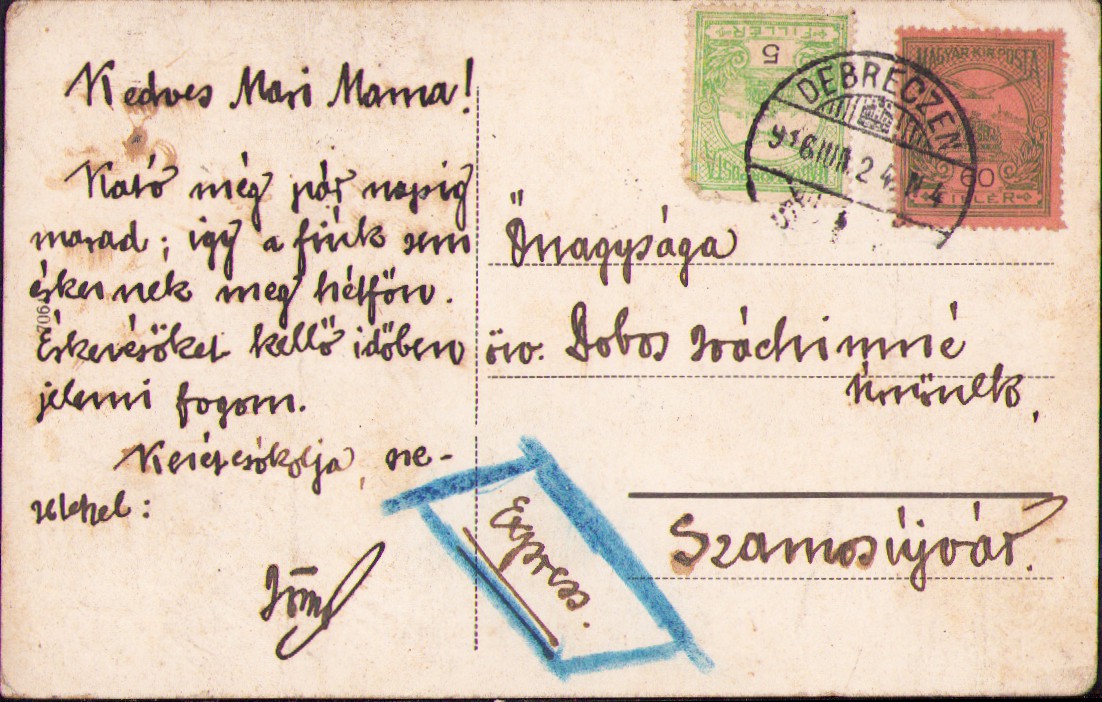 Kedves Mari Mama!
Kató még pár napig
marad; igy a fiúk sem
érkeznek meg hétfőn.
Érkezésőket kellő időben
jelezni fogom.
Kezét csókolja, sze-
retettel:
5
FILLÉR
MAGYAR KIR. POSTA
60
FILLÉR
DEBRECZEN
916 24
Őnagysága
özv. Dobos Joáchimné
úrnőnek,
Szamosújvár.
Express.
706